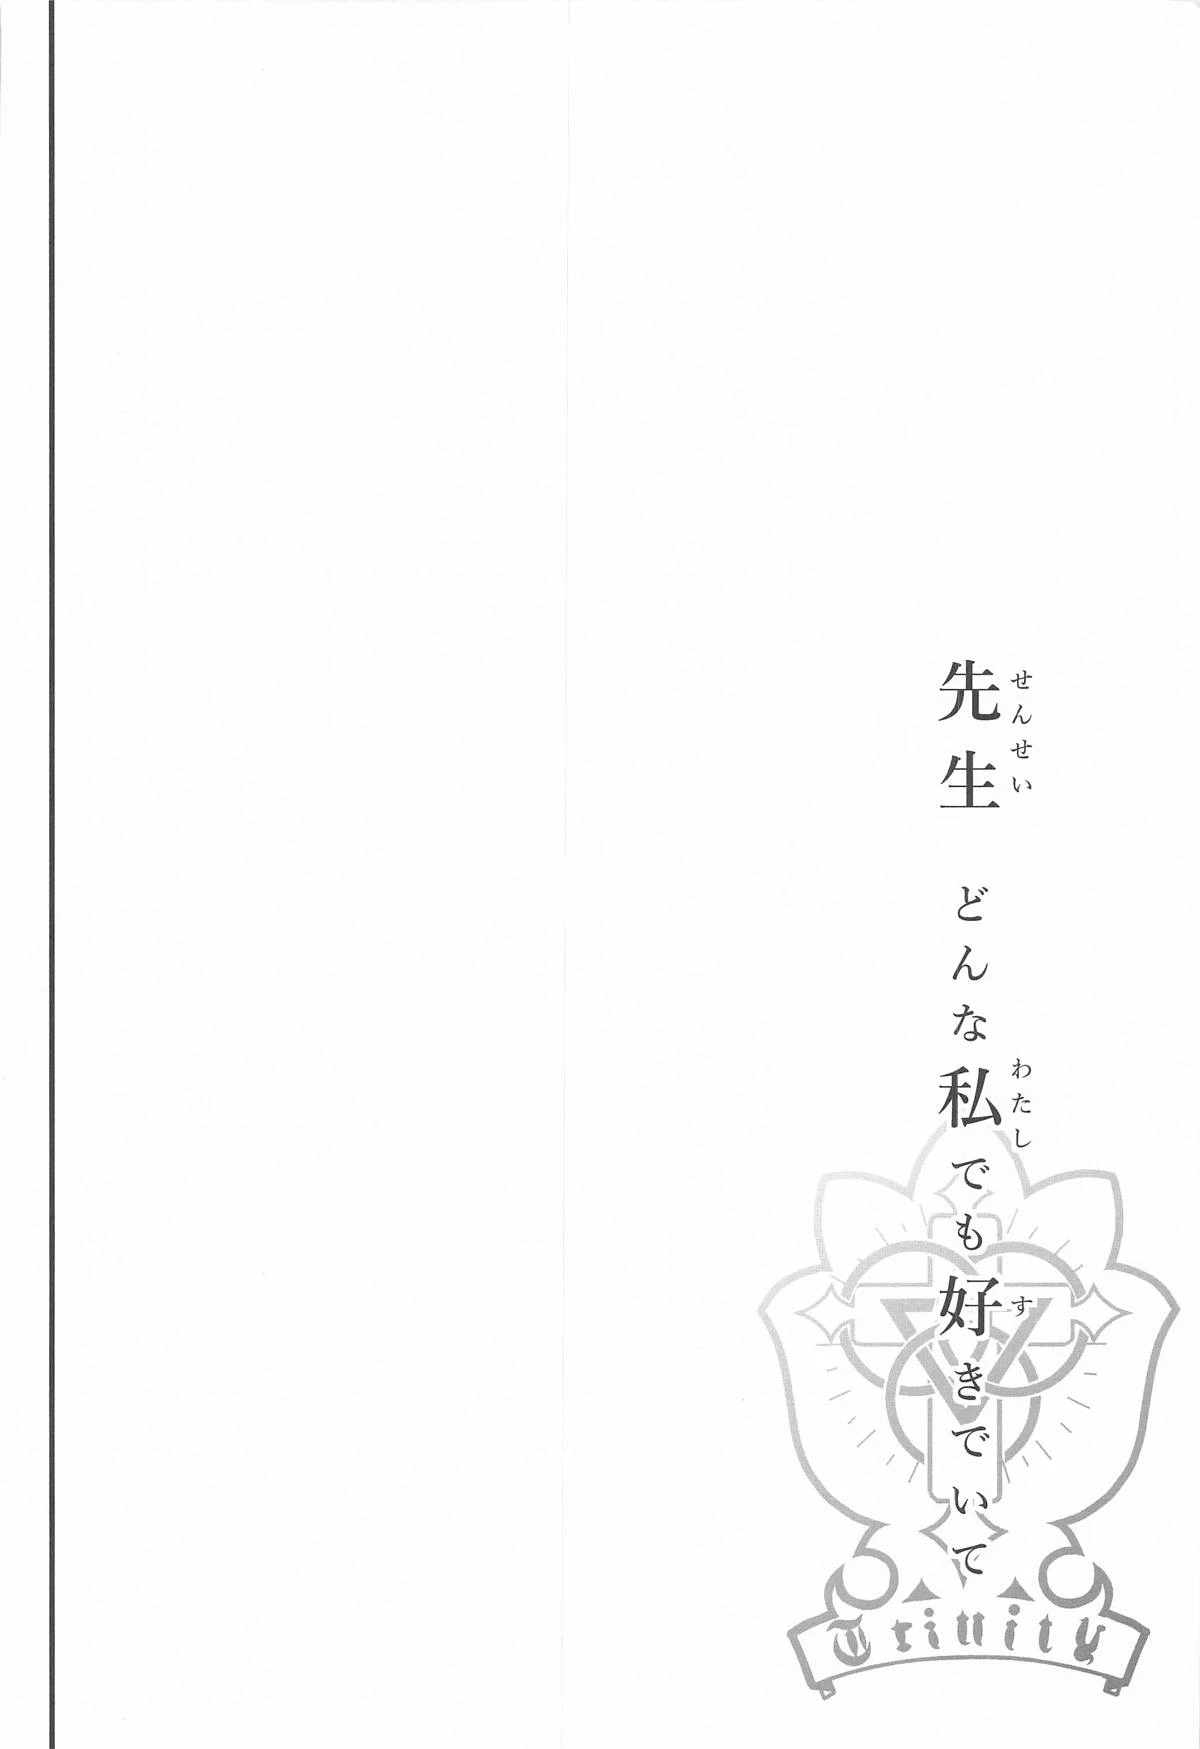 先生 どんな私でも好きでいて
せんせい
わたし
す
Trinity